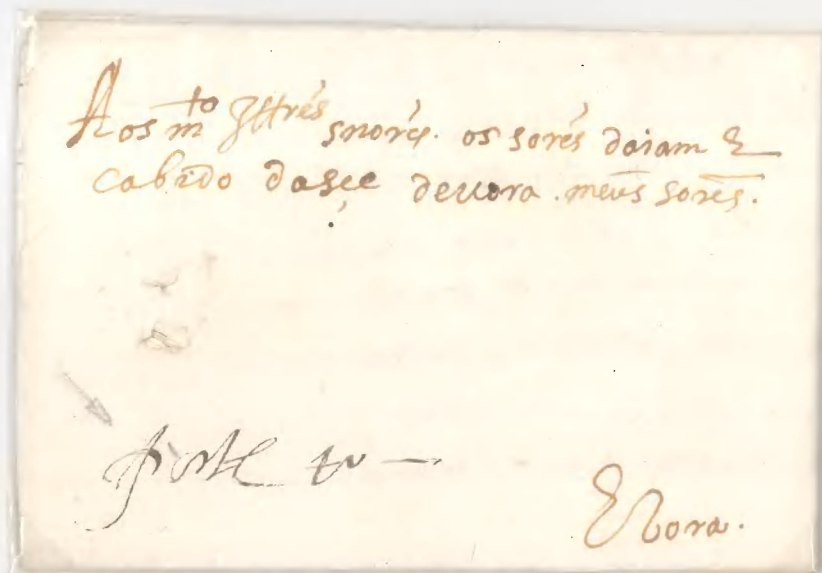 Aos m.to Illres snores. os sores daiam E
cabido dasee deuora. meus sores.
porte
Evora.